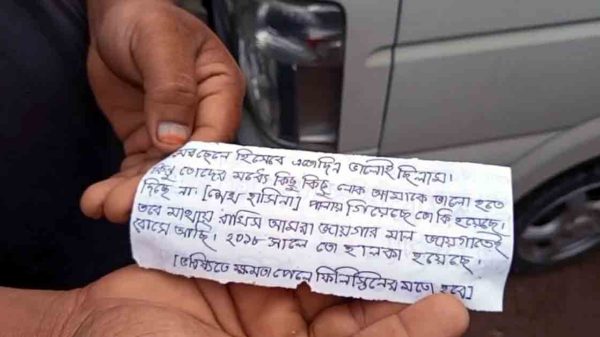 ছেলে হিসেবে এতোদিন ভালোই ছিলাম।
কিন্তু তোদের মধ্যে কিছু কিছু লোক আমাকে ভালো হতে
দিছে না। [শেখ হাসিনা] পালায় গিয়েছে তো কি হয়েছে।
তবে মাথায় রাখিস আমরা জায়গার মাল জায়গাতেই
বোসে আছি। ২০১৮ সালে তো হালকা হয়েছে।
[ভবিষ্যতে ক্ষমতা পেলে ফিলিস্তিনের মতো হবে]